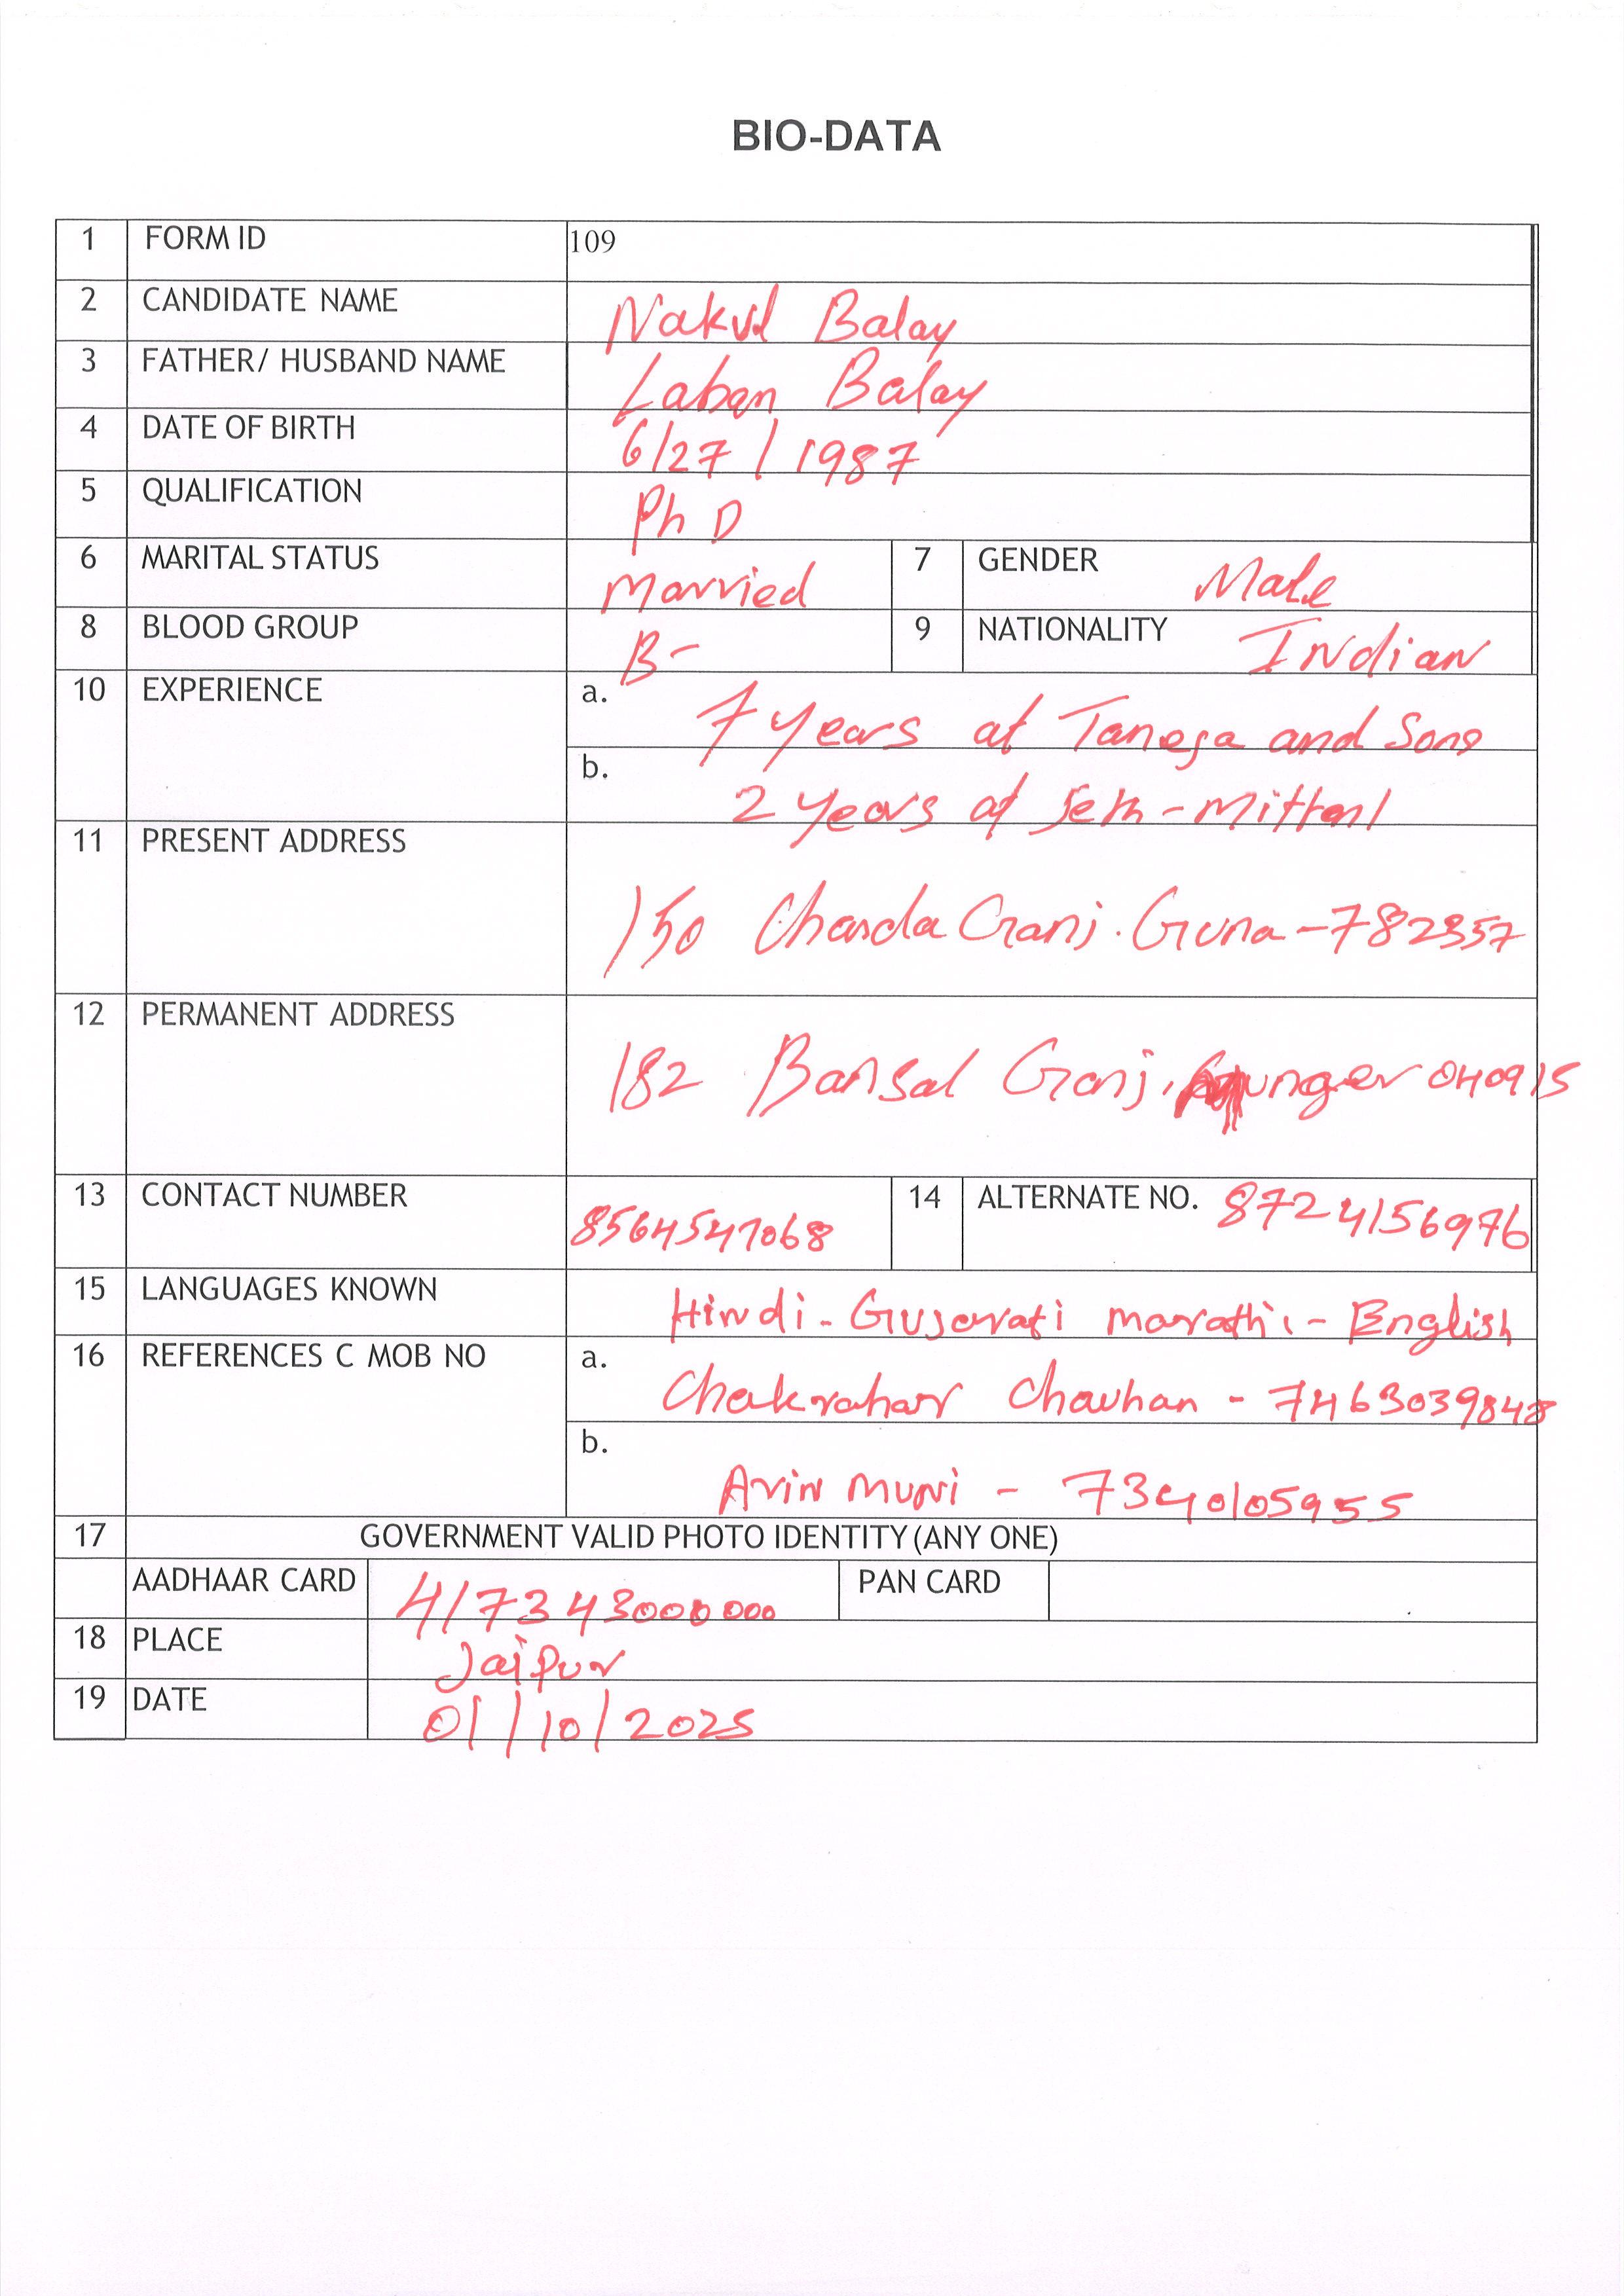 BIO-DATA
1 FORM ID 109
2 CANDIDATE NAME Nakul Balay
3 FATHER/ HUSBAND NAME Laban Balay
4 DATE OF BIRTH 6/27/1987
5 QUALIFICATION Ph D
6 MARITAL STATUS Married 7 GENDER Male
8 BLOOD GROUP B- 9 NATIONALITY Indian
10 EXPERIENCE a. 7 years at Taneja and Sons
b. 2 years at Seth-Mittal
11 PRESENT ADDRESS
150 Chanda Ganj. Guna-782357
12 PERMANENT ADDRESS
182 Bansal Ganj, 040915
13 CONTACT NUMBER 8564547068 14 ALTERNATE NO. 8724156976
15 LANGUAGES KNOWN Hindi - Gujarati Marathi - English
16 REFERENCES C MOB NO a. Chakradhar Chauhan - 7463039848
b. Arin Muni - 7340105955
17 GOVERNMENT VALID PHOTO IDENTITY (ANY ONE)
AADHAAR CARD 417343000000 PAN CARD
18 PLACE Jaipur
19 DATE 01/10/2025